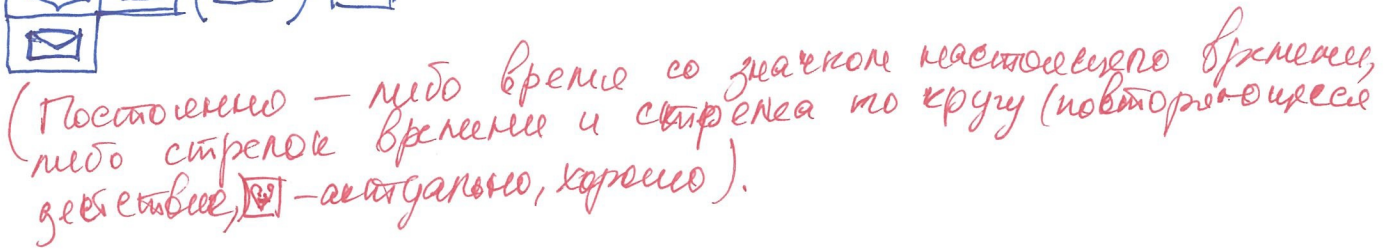 (Постоянно – либо время со значком настоящего времени,
либо стрелок времени и стрелка по кругу (повторяющееся
действие, – актуально, хорошо).